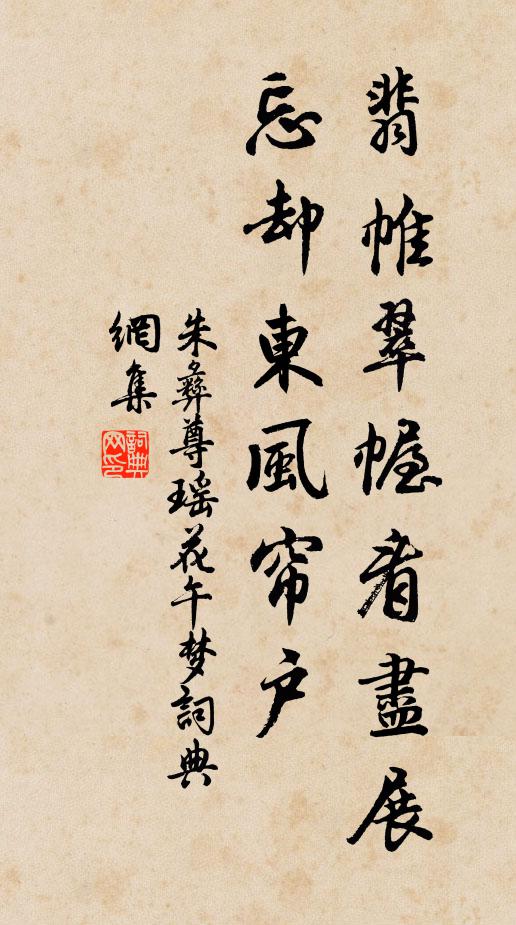 翡帷翠幄看盡展
忘却東風帘户
朱彝尊瑶花午梦詞典
網集
詞典
网印